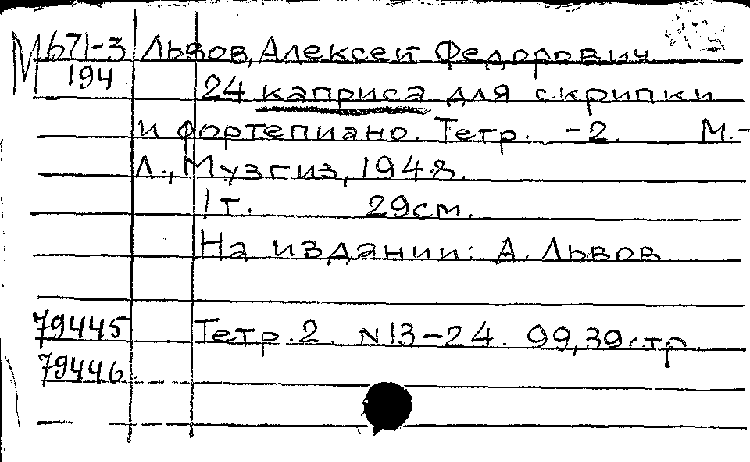 М671-3 Львов, Алексей Федорович
194 24 каприса для скрипки
и фортепиано. Тетр. -2. М.-
Л., Музгиз, 1948.
1т. 29см.
На издании: А. Львов
79445 Тетр. 2. N13-24. 99,39стр.
79446